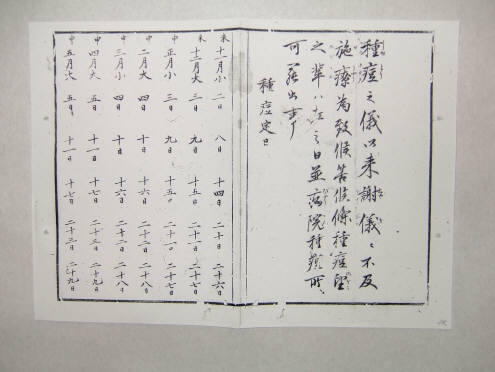 種痘之儀以来謝儀ニ不及
施療為致候筈候條種痘望
之輩ハ左之日並病院種痘所
可罷出事
種痘定日
未 十一月小 二日 八日 十四日 二十日 二十六日
未 十二月大 三日 九日 十五日 二十一日 二十七日
申 正月小 三日 九日 十五日 二十一日 二十七日
申 二月大 四日 十日 十六日 二十二日 二十八日
申 三月小 四日 十日 十六日 二十二日 二十八日
申 四月大 五日 十一日 十七日 二十三日 二十九日
申 五月大 五日 十一日 十七日 二十三日 二十九日